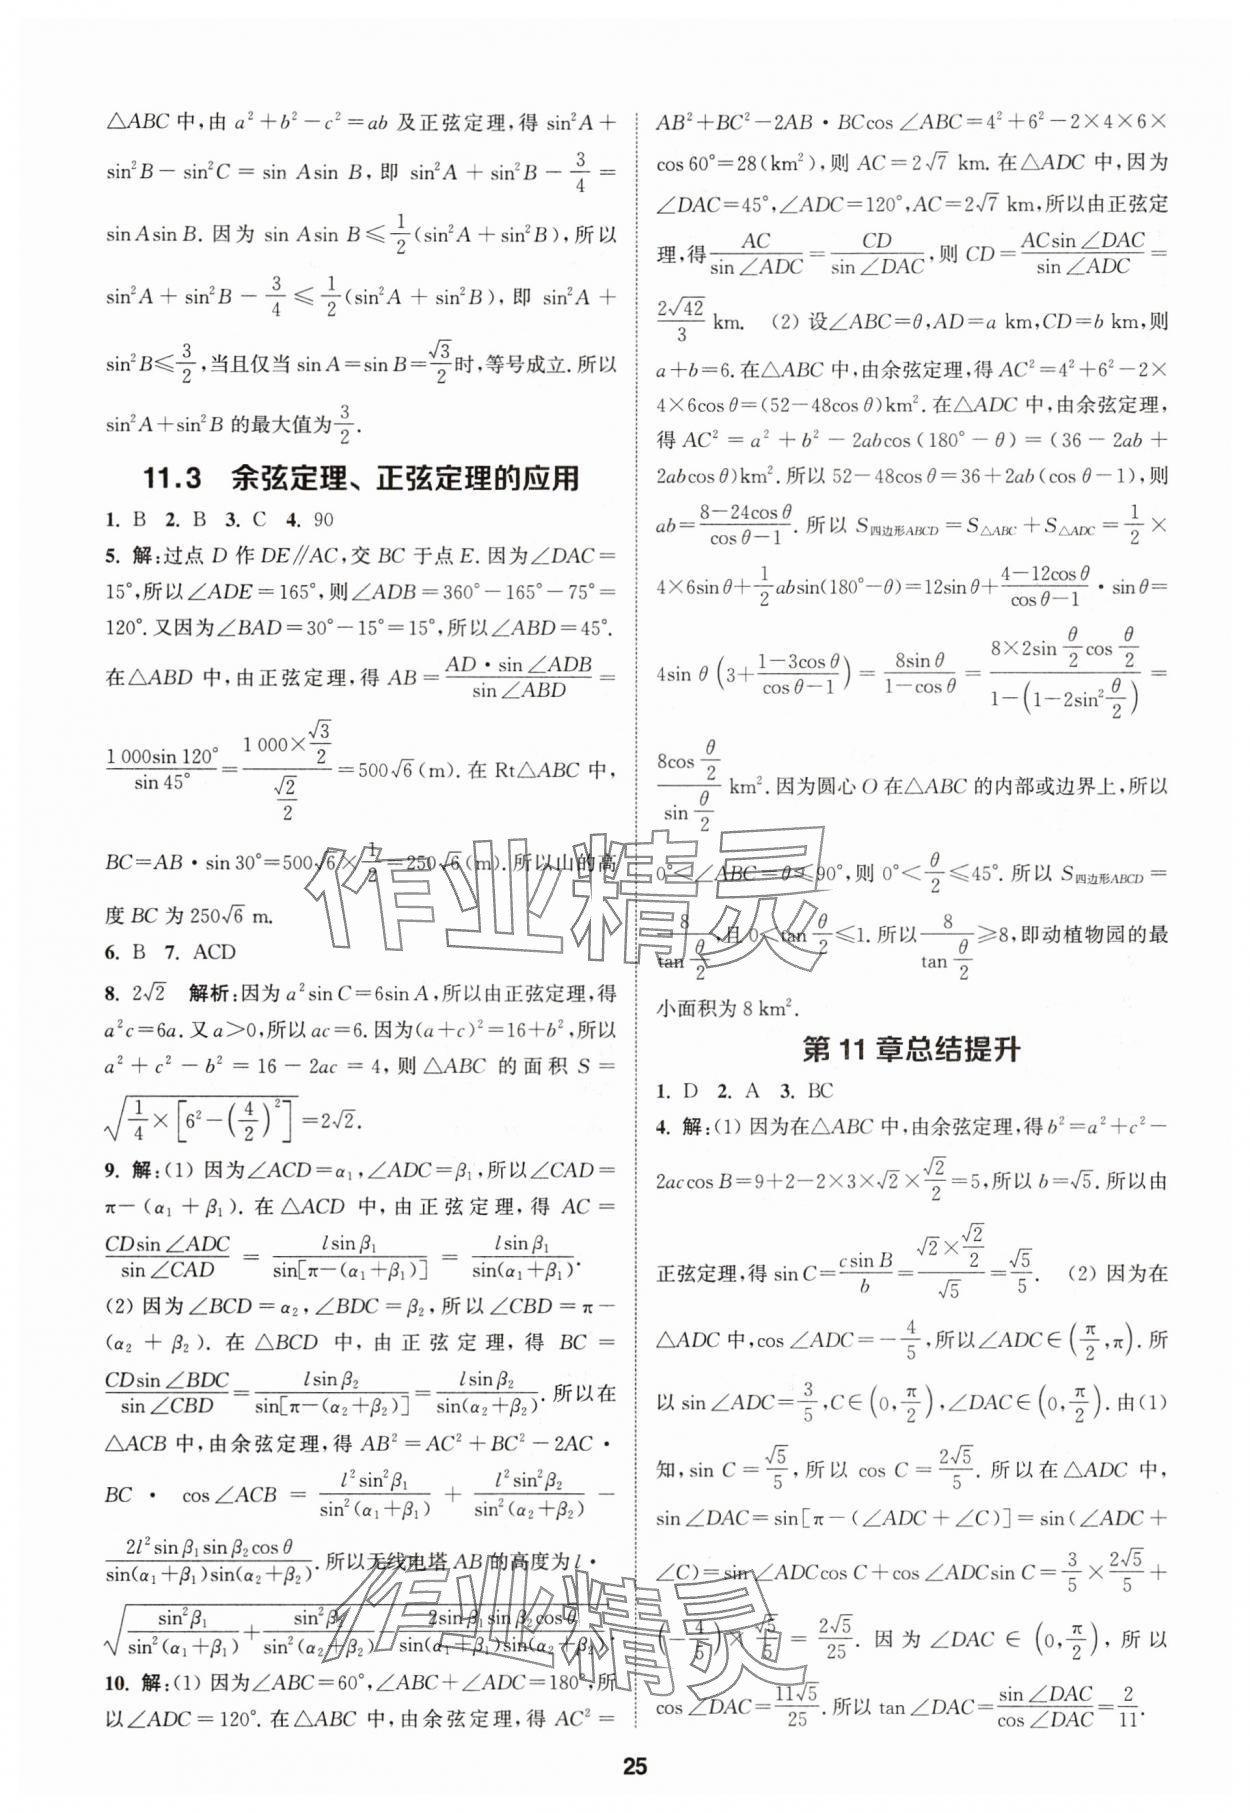 △ABC 中,由 a²+b²-c²=ab 及正弦定理,得 sin²A+
sin²B-sin²C = sin Asin B,即 sin²A+sin²B-3/4=
sin Asin B. 因为 sin Asin B≤1/2(sin²A+sin²B),所以
sin²A+sin²B-3/4≤1/2(sin²A+sin²B),即 sin²A+
sin²B≤3/2,当且仅当 sin A=sin B=√3/2时,等号成立.所以
sin²A+sin²B 的最大值为3/2.
11.3 余弦定理、正弦定理的应用
1. B 2. B 3. C 4. 90
5. 解:过点 D 作 DE∥AC,交 BC 于点 E.因为∠DAC=
15°,所以∠ADE=165°,则∠ADB=360°-165°-75°=
120°.又因为∠BAD=30°-15°=15°,所以∠ABD=45°.
在△ABD 中,由正弦定理,得 AB=AD·sin∠ADB/sin∠ABD=
1 000sin 120°/sin 45°=(1 000×√3/2)/(√2/2)=500√6(m).在 Rt△ABC 中,
BC=AB·sin 30°=500√6×1/2=250√6(m).所以山的高
度 BC 为 250√6 m.
6. B 7. ACD
8. 2√2 解析:因为 a²sin C=6sin A,所以由正弦定理,得
a²c=6a.又 a>0,所以 ac=6.因为(a+c)²=16+b²,所以
a²+c²-b²=16-2ac=4,则△ABC 的面积 S=
√(1/4×[6²-(4/2)²])=2√2.
9. 解:(1) 因为∠ACD=α₁,∠ADC=β₁,所以∠CAD=
π-(α₁+β₁). 在△ACD 中,由正弦定理,得 AC=
CDsin∠ADC/sin∠CAD = lsinβ₁/sin[π-(α₁+β₁)] = lsinβ₁/sin(α₁+β₁).
(2) 因为∠BCD=α₂,∠BDC=β₂,所以∠CBD=π-
(α₂+β₂). 在△BCD 中,由正弦定理,得 BC=
CDsin∠BDC/sin∠CBD=lsinβ₂/sin[π-(α₂+β₂)]=lsinβ₂/sin(α₂+β₂).所以在
△ACB 中,由余弦定理,得 AB²=AC²+BC²-2AC·
BC·cos∠ACB = l²sin²β₁/sin²(α₁+β₁) + l²sin²β₂/sin²(α₂+β₂) -
2l²sinβ₁sinβ₂cosθ/sin(α₁+β₁)sin(α₂+β₂).所以无线电塔 AB 的高度为 l·
√(sin²β₁/sin²(α₁+β₁)+sin²β₂/sin²(α₂+β₂)-2sinβ₁sinβ₂cosθ/sin(α₁+β₁)sin(α₂+β₂)).
10. 解:(1) 因为∠ABC=60°,∠ABC+∠ADC=180°,所
以∠ADC=120°.在△ABC 中,由余弦定理,得 AC²=
AB²+BC²-2AB·BCcos∠ABC=4²+6²-2×4×6×
cos 60°=28(km²),则 AC=2√7 km.在△ADC 中,因为
∠DAC=45°,∠ADC=120°,AC=2√7 km,所以由正弦定
理,得AC/sin∠ADC=CD/sin∠DAC,则 CD=ACsin∠DAC/sin∠ADC=
2√42/3 km. (2) 设∠ABC=θ,AD=a km,CD=b km,则
a+b=6.在△ABC 中,由余弦定理,得 AC²=4²+6²-2×
4×6cosθ=(52-48cosθ)km².在△ADC 中,由余弦定理,
得 AC²=a²+b²-2abcos(180°-θ)=(36-2ab+
2abcosθ)km².所以 52-48cosθ=36+2ab(cosθ-1),则
ab=8-24cosθ/cosθ-1.所以 S四边形ABCD=S△ABC+S△ADC=1/2×
4×6sinθ+1/2absin(180°-θ)=12sinθ+4-12cosθ/cosθ-1·sinθ=
4sinθ(3+1-3cosθ/cosθ-1)=8sinθ/1-cosθ=(8×2sinθ/2cosθ/2)/(1-(1-2sin²θ/2))=
(8cosθ/2)/(sinθ/2) km².因为圆心 O 在△ABC 的内部或边界上,所以
0°<∠ABC=θ≤90°,则 0°<θ/2≤45°.所以 S四边形ABCD=
8/(tanθ/2),且 0<tanθ/2≤1.所以8/(tanθ/2)≥8,即动植物园的最
小面积为 8 km².
第 11 章总结提升
1. D 2. A 3. BC
4. 解:(1) 因为在△ABC 中,由余弦定理,得 b²=a²+c²-
2accos B=9+2-2×3×√2×√2/2=5,所以 b=√5.所以由
正弦定理,得 sin C=csin B/b=(√2×√2/2)/√5=√5/5. (2) 因为在
△ADC 中,cos∠ADC=-4/5,所以∠ADC∈(π/2,π).所
以 sin∠ADC=3/5,C∈(0,π/2),∠DAC∈(0,π/2).由(1)
知,sin C=√5/5,所以 cos C=2√5/5.所以在△ADC 中,
sin∠DAC=sin[π-(∠ADC+∠C)]=sin(∠ADC+
∠C)=sin∠ADCcos C+cos∠ADCsin C=3/5×2√5/5+
(-4/5)×√5/5=2√5/25. 因为∠DAC∈(0,π/2),所以
cos∠DAC=11√5/25.所以 tan∠DAC=sin∠DAC/cos∠DAC=2/11.
作业精灵
作业精灵
25